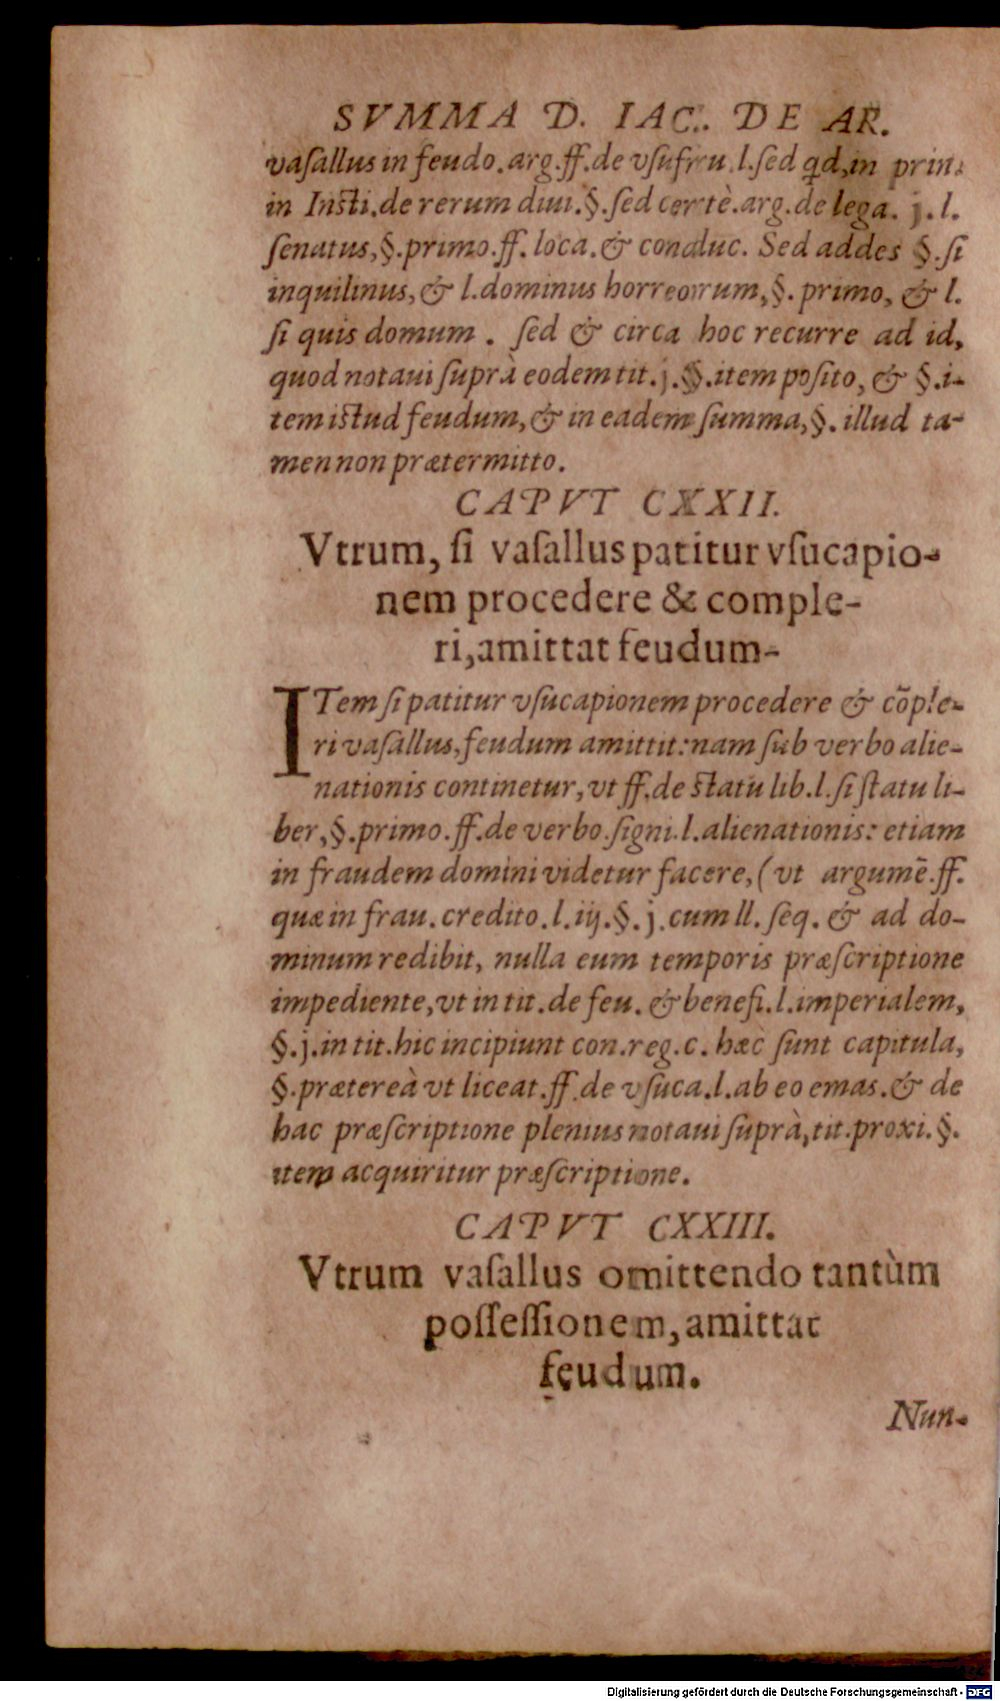 SVMMA D. IAC. DE AR.
vaſallus in feudo. arg. ff. de vſufru. l. ſed qd, in prin.
in Inſti. de rerum diui. §. ſed certè. arg. de lega. j. l.
ſenatus, §. primo. ff. loca. & conduc. Sed addes §. ſi
inquilinus, & l. dominus horreorum, §. primo, & l.
ſi quis domum. ſed & circa hoc recurre ad id,
quod notaui ſuprà eodem tit. j. §. item poſito, & §. i-
tem iſtud feudum, & in eadem ſumma, §. illud ta-
men non prætermitto.
CAPVT CXXII.
Vtrum, ſi vaſallus patitur vſucapio-
nem procedere & comple-
ri, amittat feudum-
ITem ſi patitur vſucapionem procedere & cõple-
ri vaſallus, feudum amittit: nam ſub verbo alie-
nationis continetur, vt ff. de ſtatu lib. l. ſi ſtatu li-
ber, §. primo. ff. de verbo. ſigni. l. alienationis: etiam
in fraudem domini videtur facere, (vt argumẽ. ff.
quæ in frau. credito. l. iij. §. j. cum ll. ſeq. & ad do-
minum redibit, nulla eum temporis præſcriptione
impediente, vt in tit. de feu. & benefi. l. imperialem,
§. j. in tit. hic incipiunt con. reg. c. hæc ſunt capitula,
§. prætereà vt liceat. ff. de vſuca. l. ab eo emas. & de
hac præſcriptione plenius notaui ſuprà, tit. proxi. §.
item acquiritur præſcriptione.
CAPVT CXXIII.
Vtrum vaſallus omittendo tantùm
poſſeſſionem, amittat
feudum.
Nun-
Digitalisierung gefördert durch die Deutsche Forschungsgemeinschaft - DFG